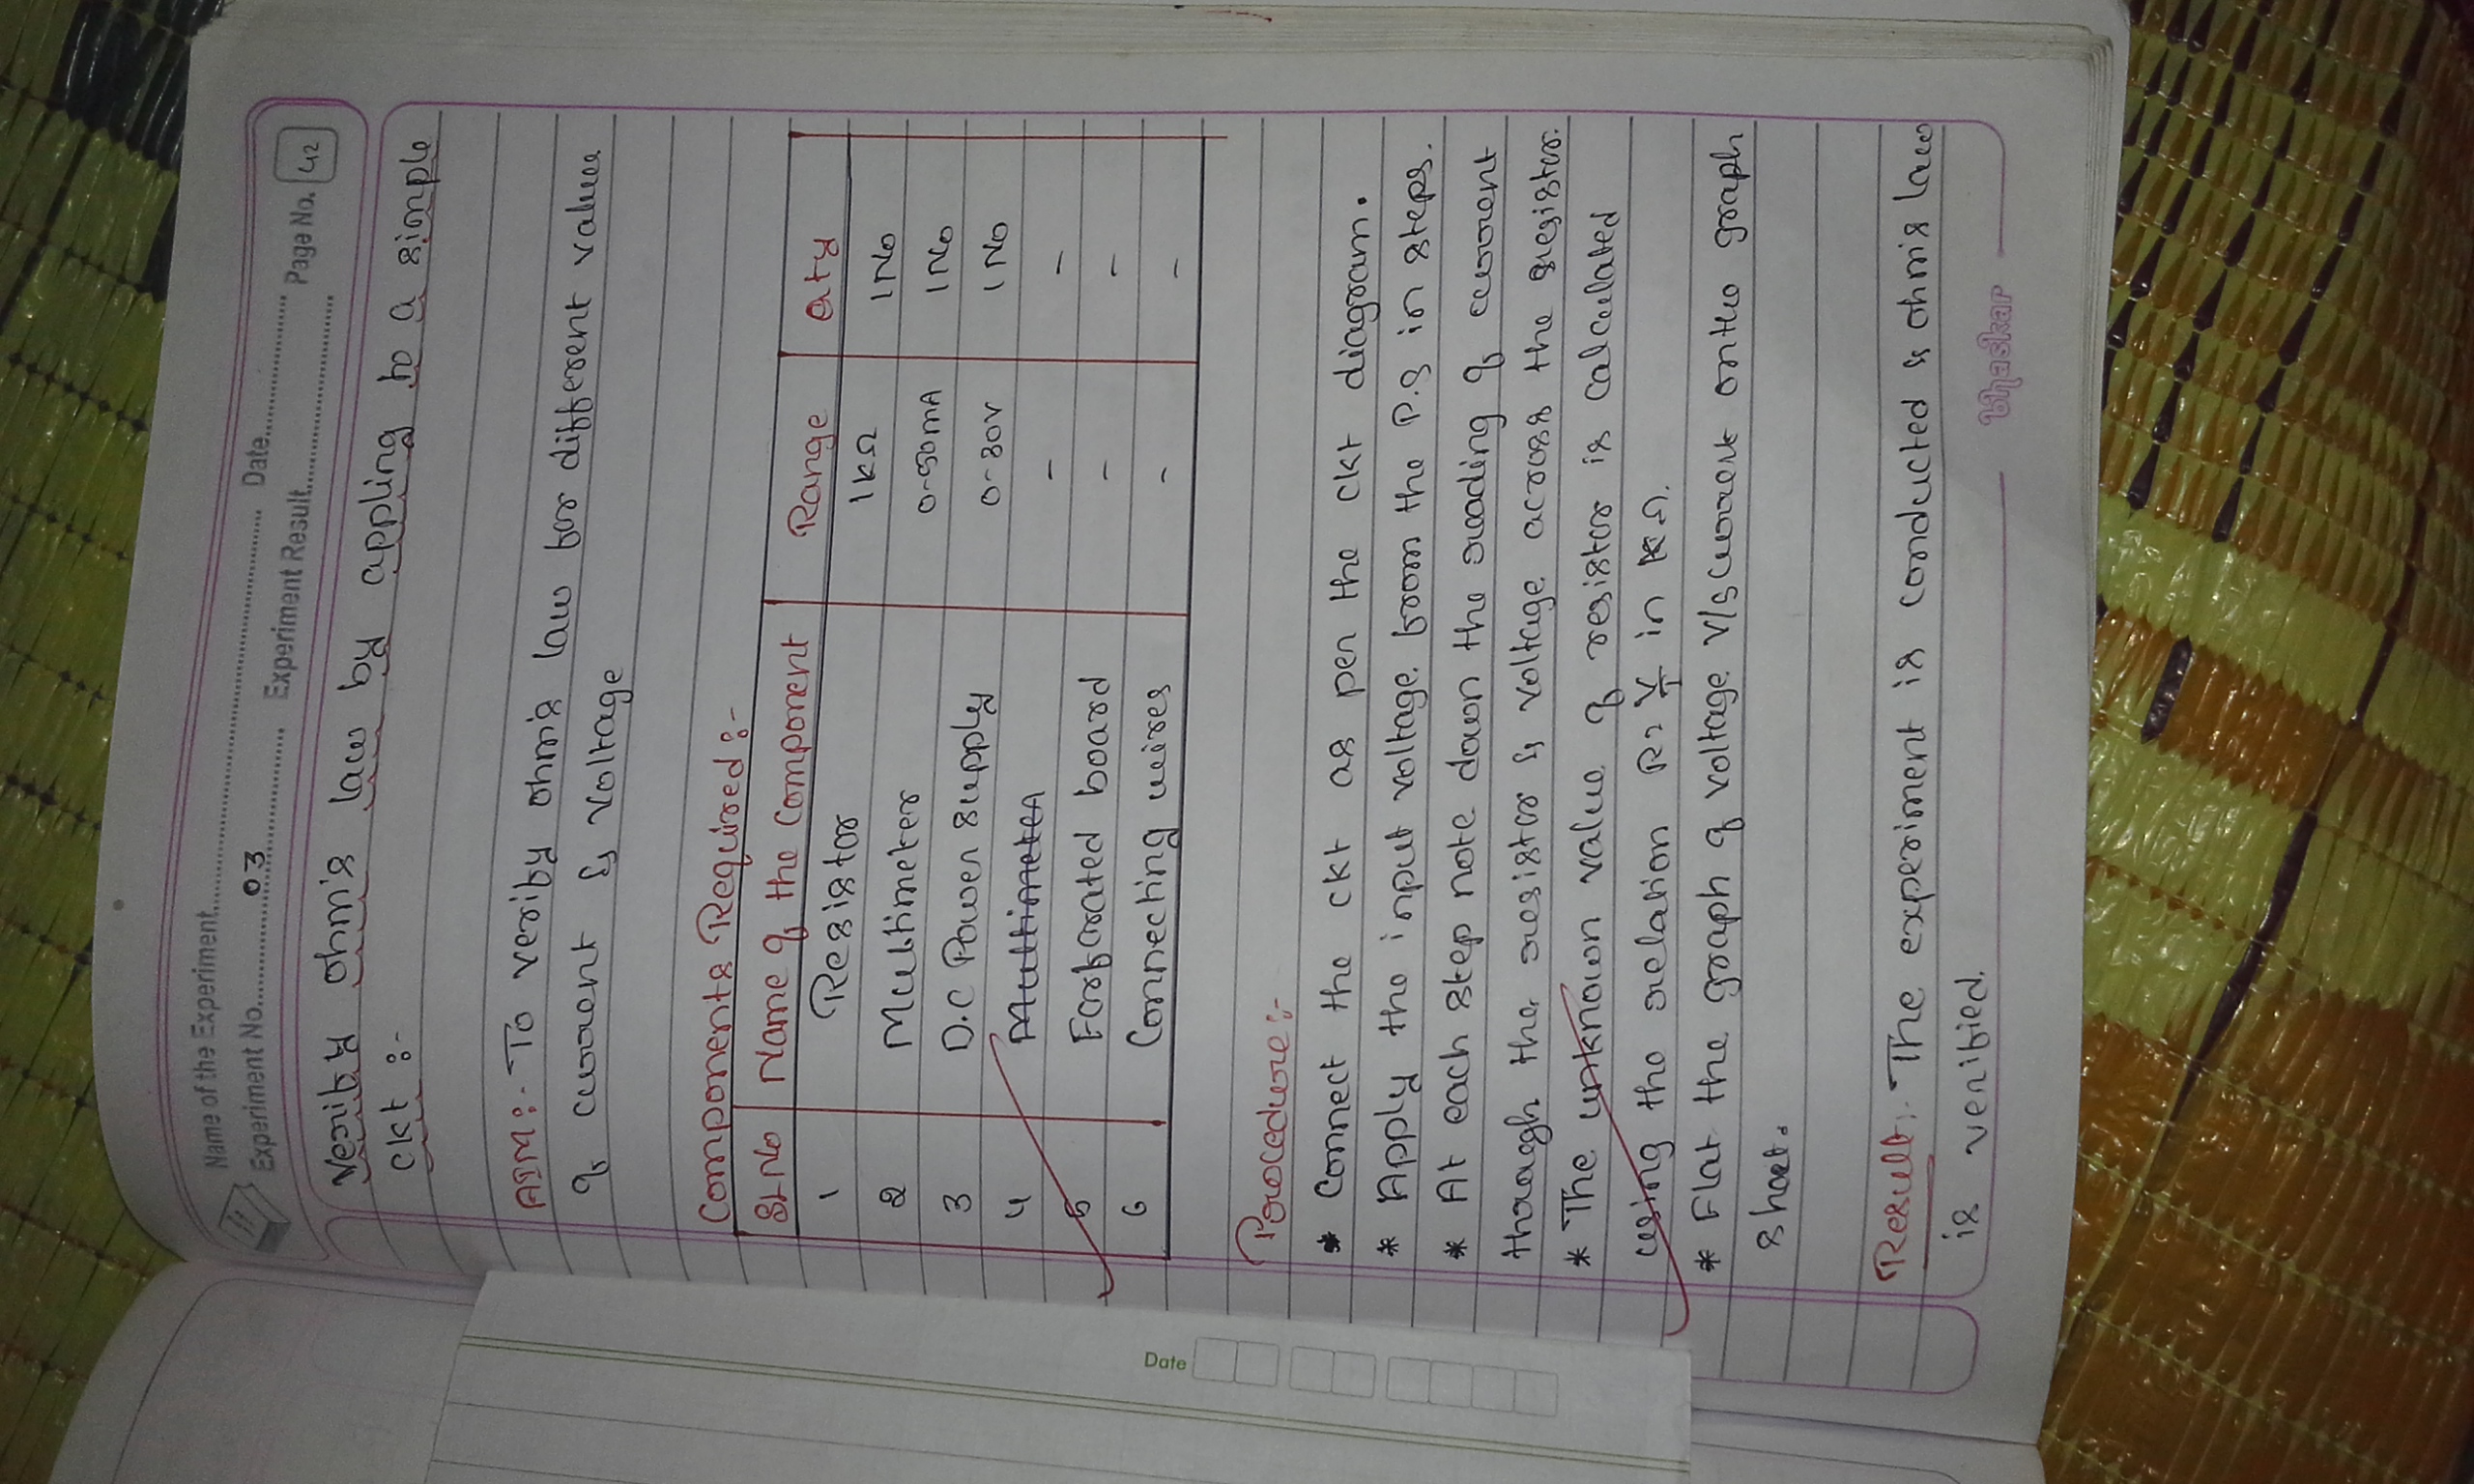 Name of the Experiment.......... Date..........
Experiment No. 03 Experiment Result.......... Page No. 42
Verify ohm's law by appling to a simple
ckt :-
AIM :- To verify ohm's law for different values
of current & voltage
Components Required :-
Sl.No Name of the Component Range Qty
1 Resistor 1KΩ 1 No
2 Multimeter 0-50mA 1 No
3 D.C Power supply 0-30V 1 No
4 Multimeter - -
5 Farbrated board - -
6 Connecting wires - -
Procedure :-
* Connect the ckt as per the ckt diagram.
* Apply the input voltage from the P.S in steps.
* At each step note down the reading of current
through the resistor & voltage across the resistor.
* The unknown value of resistor is calculated
using the relation R = V/I in KΩ.
* Flat the graph of voltage V/S current on the graph
sheet.
Result :- The experiment is conducted & ohm's law
is verified.
bhaskar
Date